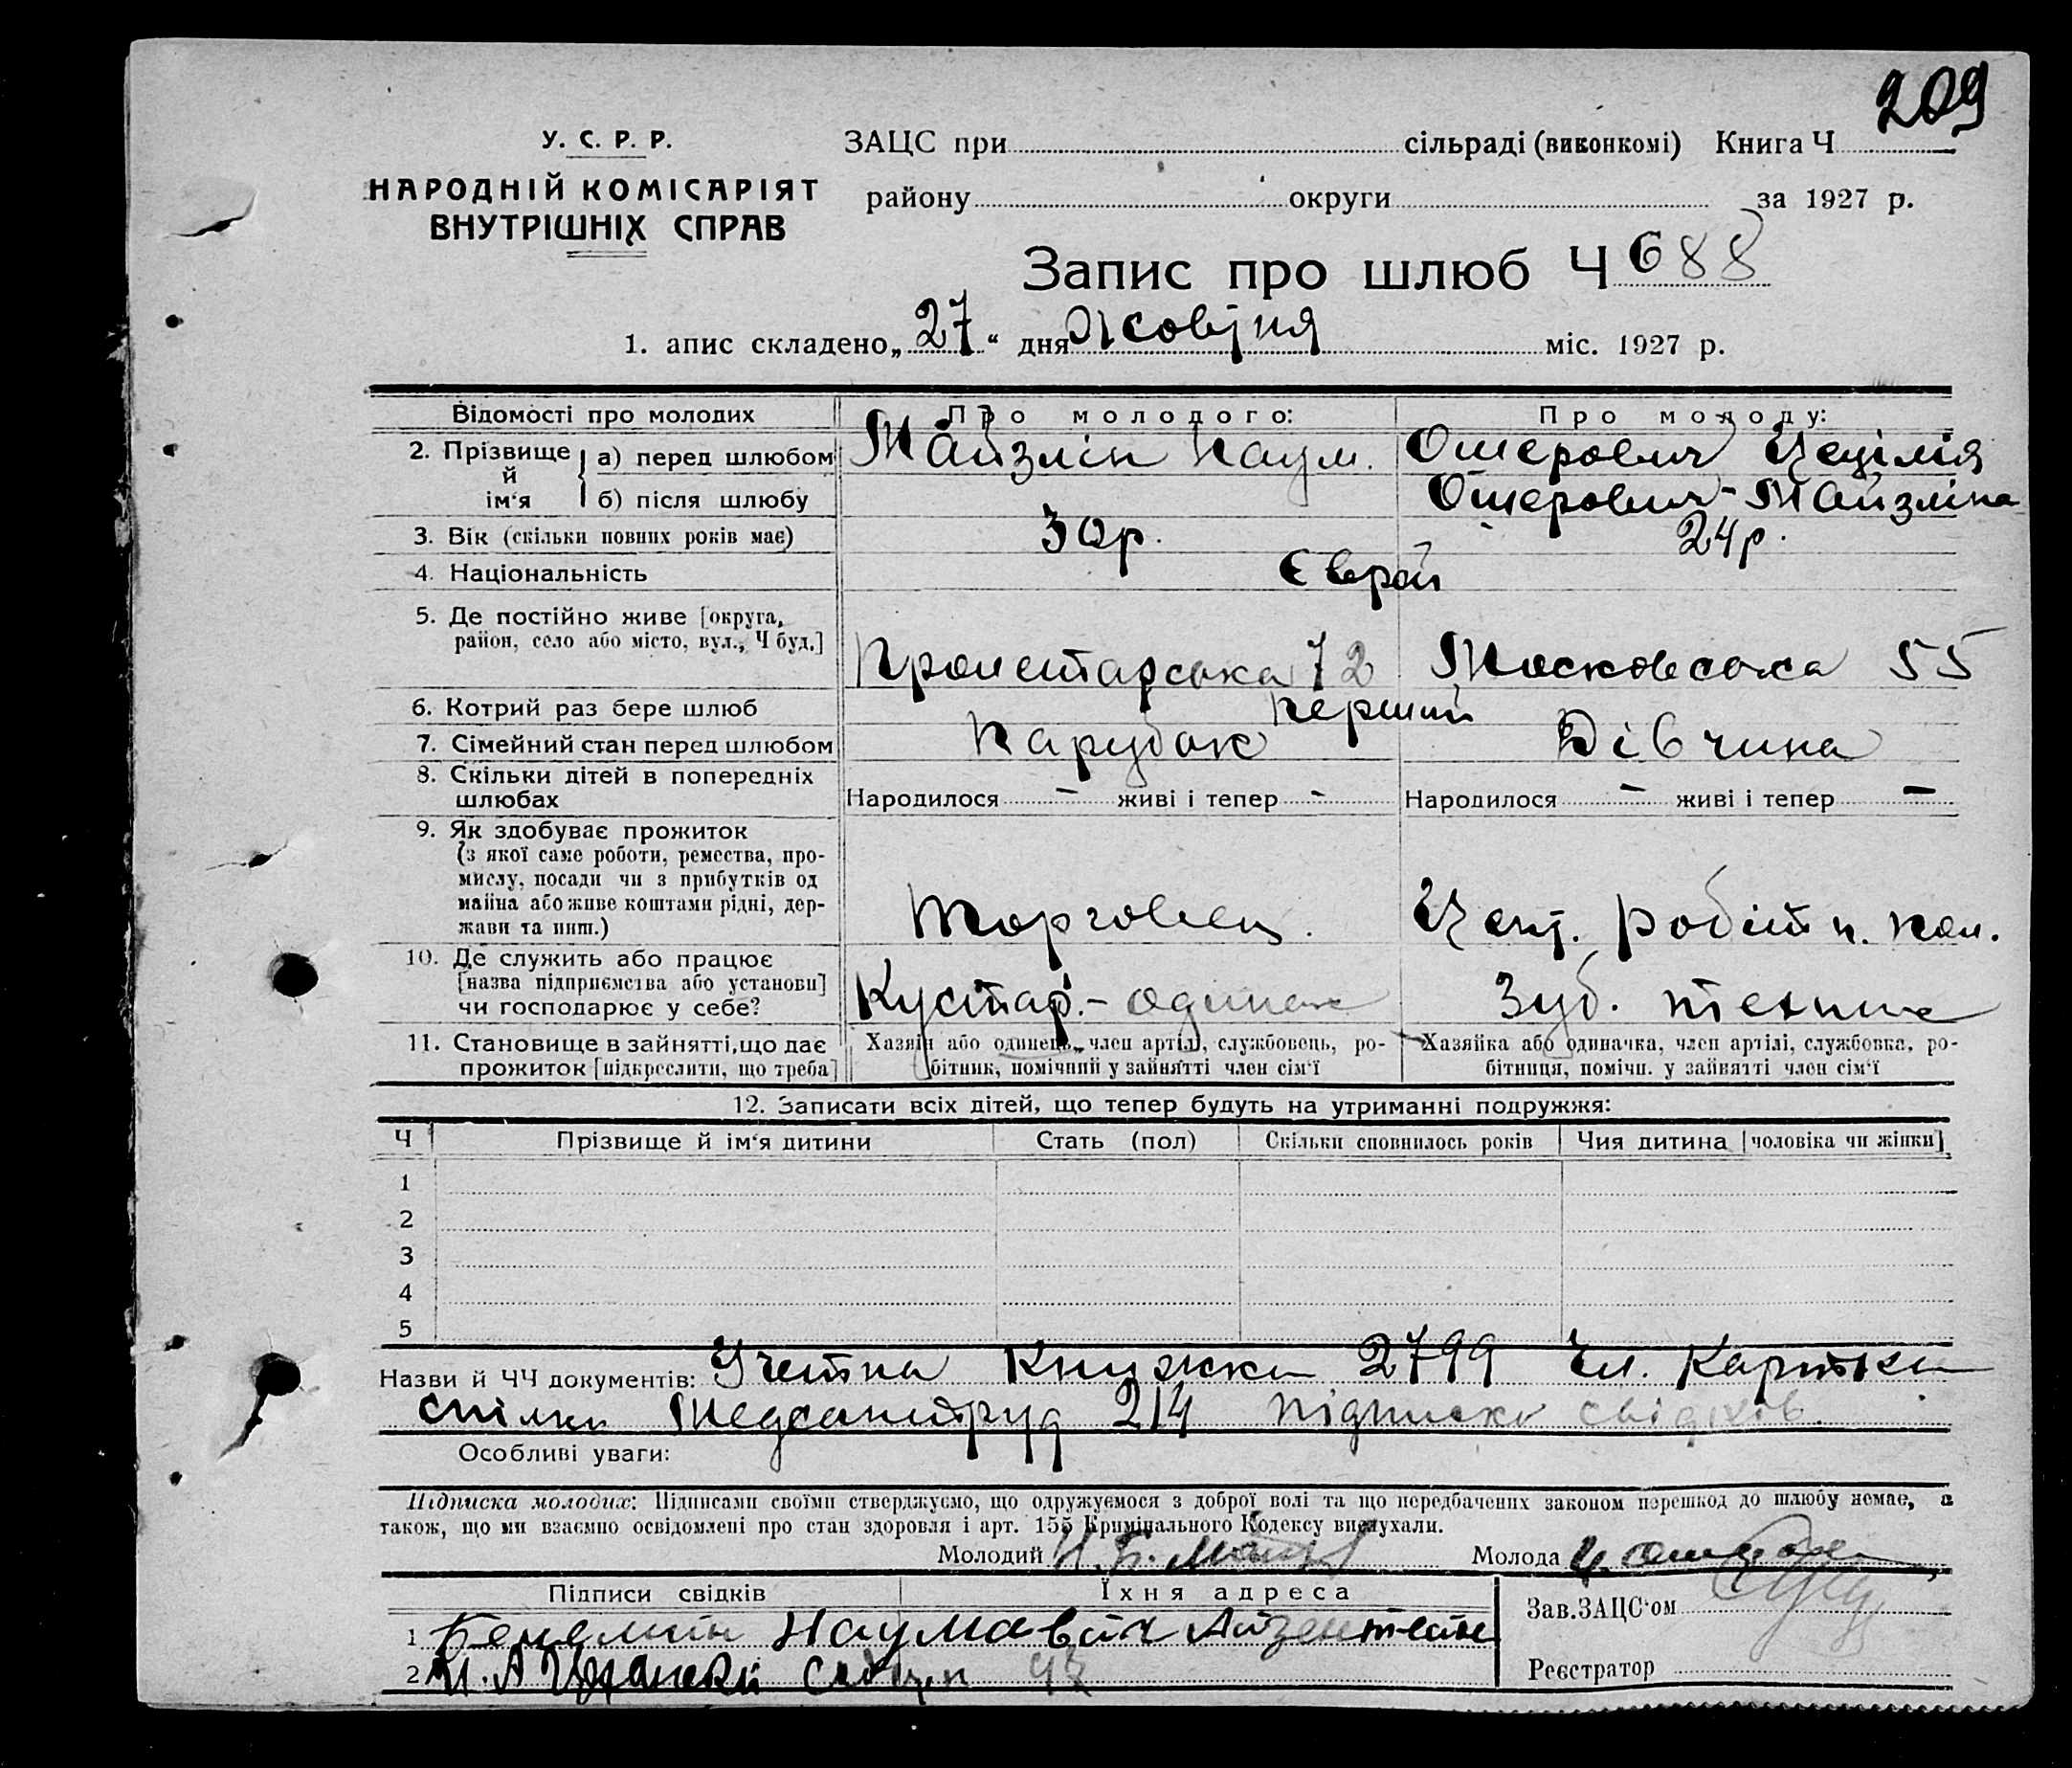 209
У. С. Р. Р.
НАРОДНІЙ КОМІСАРІЯТ
ВНУТРІШНІХ СПРАВ
ЗАЦС при сільраді (виконкомі) Книга Ч
району округи за 1927 р.
Запис про шлюб Ч 688
1. апис складено „27“ дня Жовтня міс. 1927 р.
Відомості про молодих Про молодого: Про молоду:
2. Прізвище й ім‘я а) перед шлюбом Майзлін Наум. Ошерович Цецілія
б) після шлюбу Ошерович-Майзліна
3. Вік (скільки повних років має) 30р. 24р.
4. Національність Єврей
5. Де постійно живе [округа, район, село або місто, вул., Ч буд.] Пролетарська 72 Московська 55
6. Котрий раз бере шлюб Перший
7. Сімейний стан перед шлюбом Парубок Дівчина
8. Скільки дітей в попередніх шлюбах Народилося - живі і тепер - Народилося - живі і тепер -
9. Як здобуває прожиток
(з якої саме роботи, ремества, про-
мислу, посади чи з прибутків од
майна або живе коштами рідні, дер-
жави та инш.) Торговец. Цент. робітн. пол.
10. Де служить або працює
[назва підприємства або установи]
чи господарює у себе? Кустар.- одинак Зуб. технік
11. Становище в зайнятті, що дає
прожиток [підкреслити, що треба]
Хазяїн або одинець, член артілі, службовець, ро-
бітник, помічний у зайнятті член сім‘ї
Хазяйка або одиначка, член артілі, службовка, ро-
бітниця, помічн. у зайнятті член сім‘ї
12. Записати всіх дітей, що тепер будуть на утриманні подружжя:
Ч Прізвище й ім‘я дитини Стать (пол) Скільки сповнилось років Чия дитина [чоловіка чи жінки]
1
2
3
4
5
Назви й ЧЧ документів: Учетна Книжка 2799 Чл. Картка
спілки Медсантруд 214 підписка свідків.
Особливі уваги:
Підписка молодих: Підписами своїми стверджуємо, що одружуємося з доброї волі та що передбачених законом перешкод до шлюбу немає, а
також, що ми взаємно освідомлені про стан здоровля і арт. 155 Кримінального Кодексу вислухали.
Молодий Н. Б. Молода Ц.
Підписи свідків Їхня адреса
Зав. ЗАЦС‘ом
1
2
Реєстратор